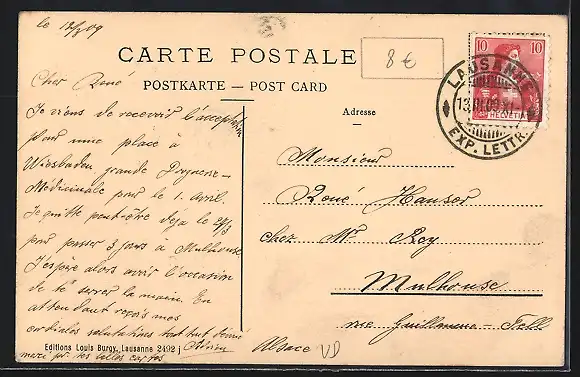 le 12/3 09
8 €
CARTE POSTALE
POSTKARTE — POST CARD
Adresse
10 10
HELVETIA
LAUSANNE
13.III.09.XI
EXP. LETTR.
Cher René
Je viens de recevoir l'accept.
pour une place à
Wiesbaden grande Droguerie-
Médicinale pour le 1. avril.
Je quitte peut-être déjà le 27/3
pour passer 3 jours à Mulhouse
J'espère alors avoir l'occasion
de te serrer la main. En
attendant reçois mes
cordiales salutations
Adrien
merci pr. tes belles cartes
Editions Louis Burgy, Lausanne 2492 j
Monsieur
René Hauser
chez Mr Roy
Mulhouse
rue Guillaume-Tell
Alsace
VD